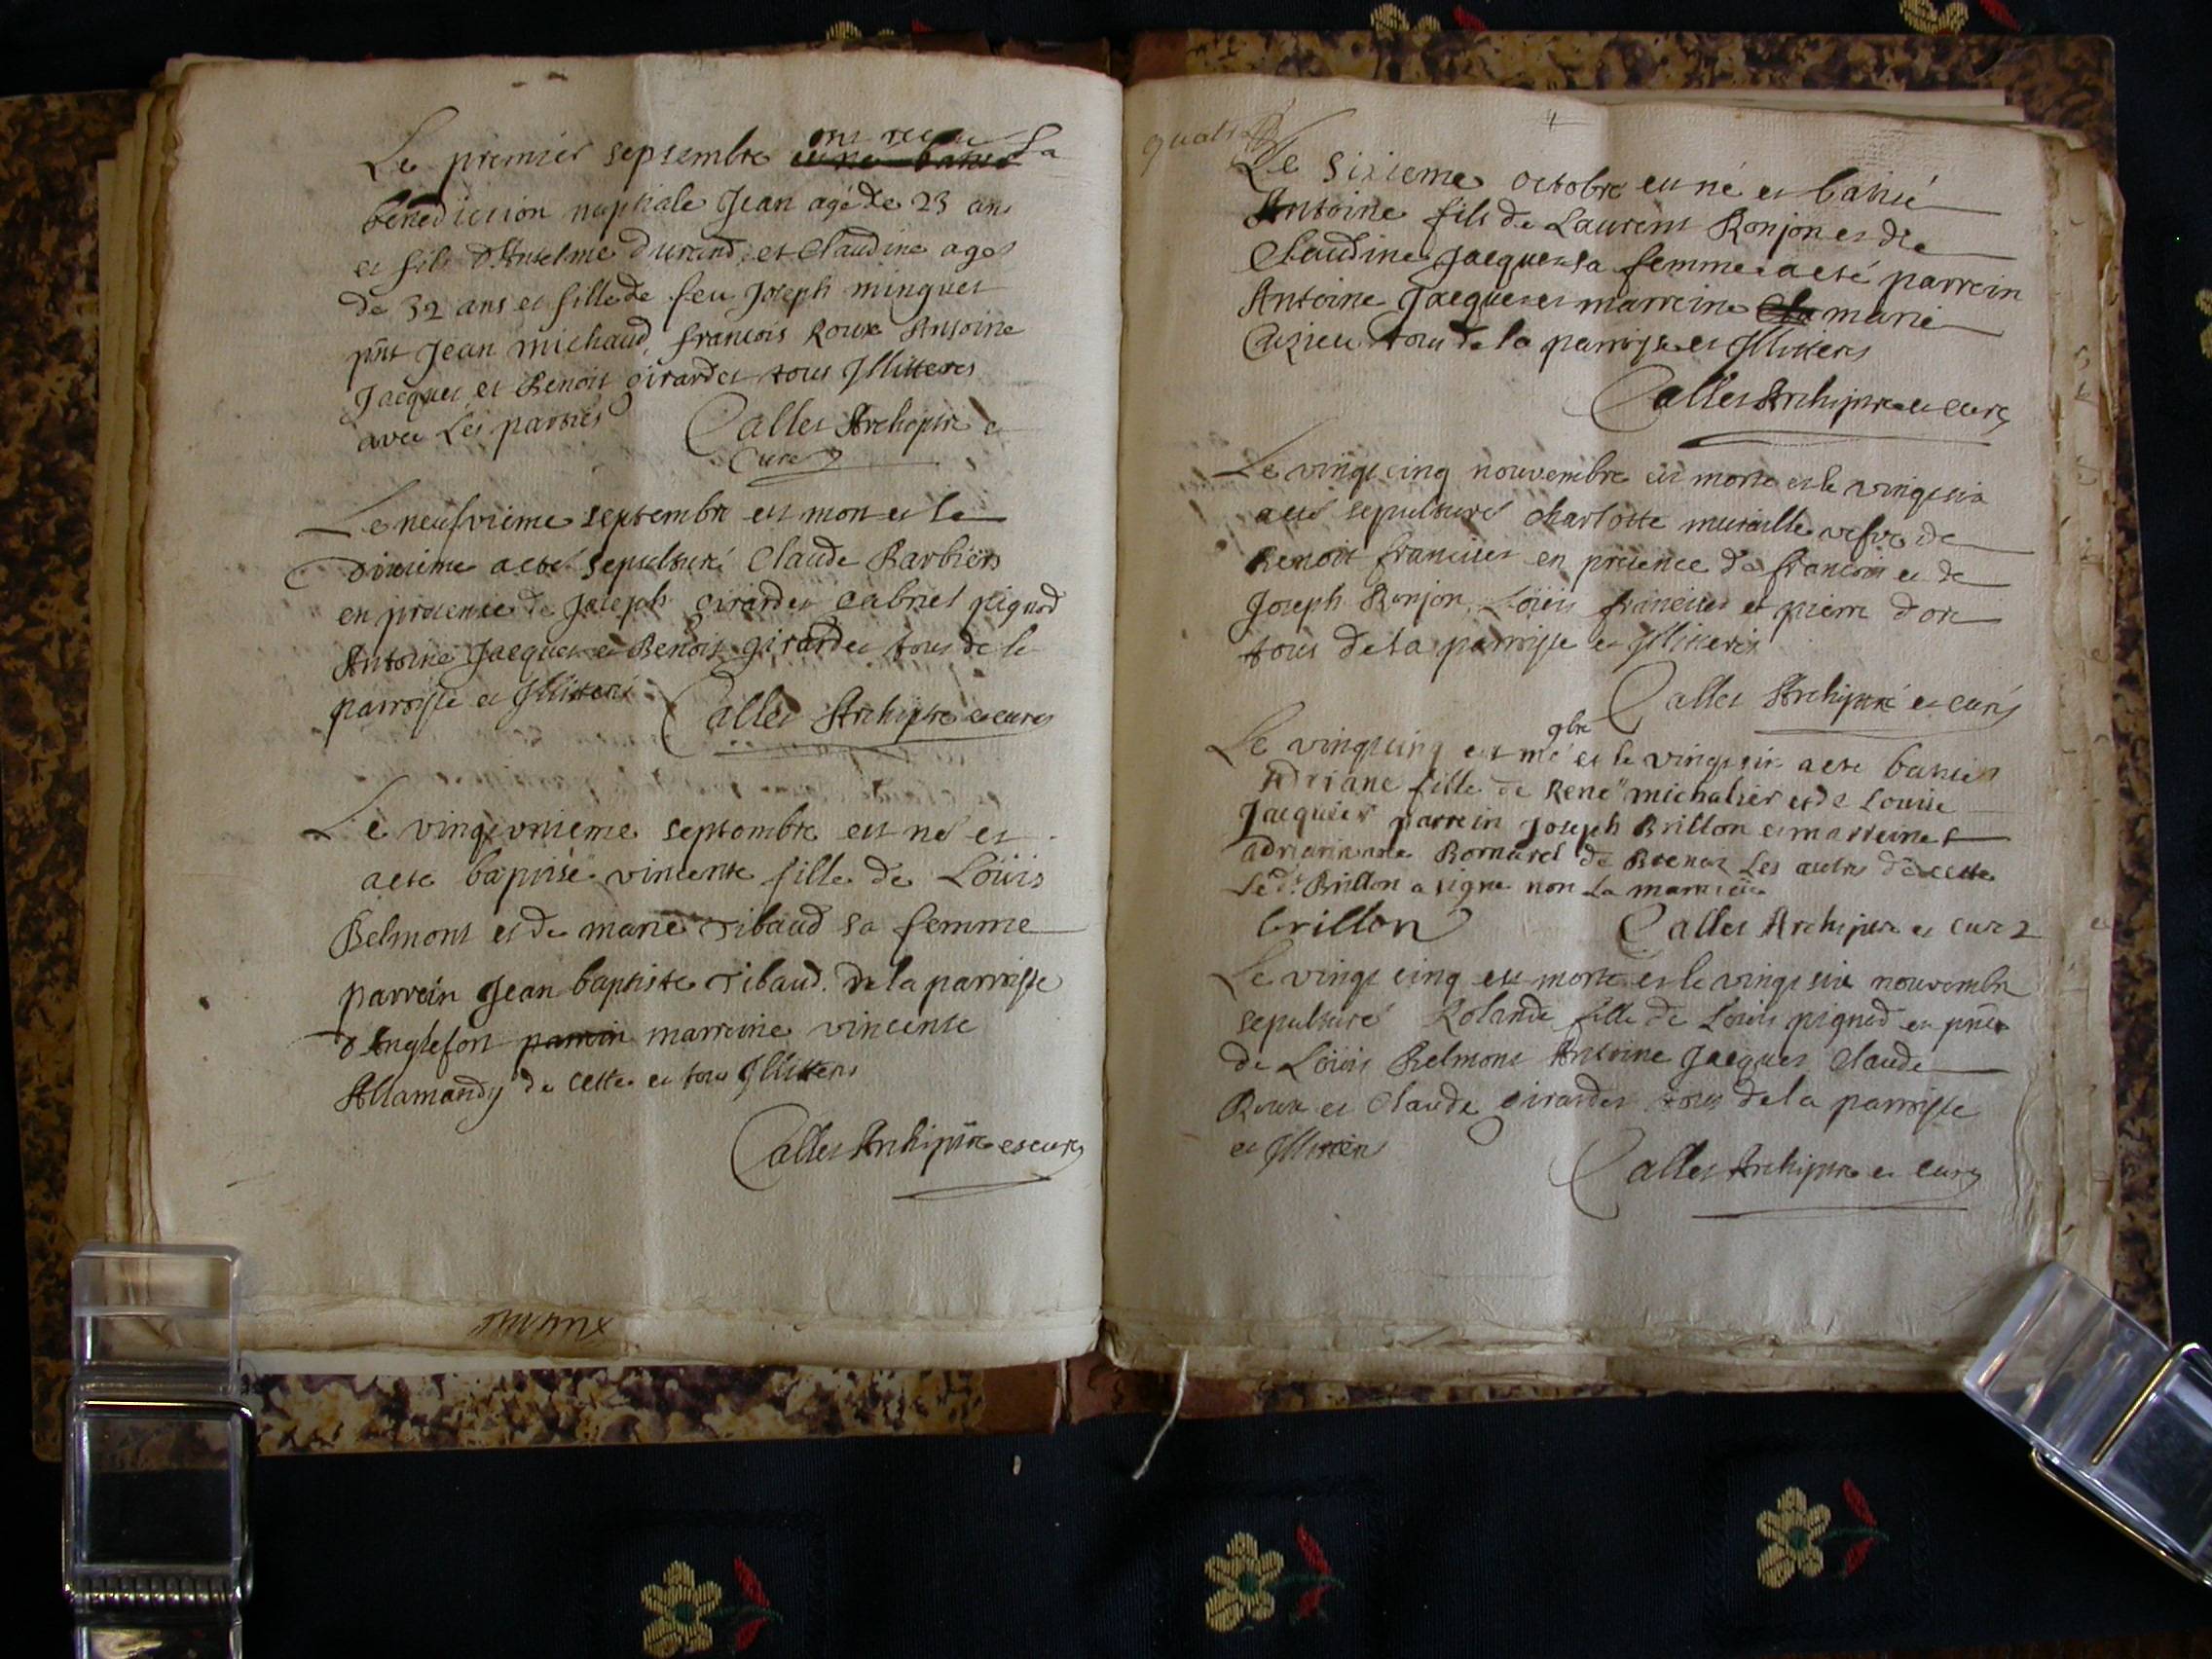 ont reçu
Le premier septembre est né batisé La
benediction nuptiale Jean agé de 23 ans
et fils d'Antelme durand et Claudine agée
de 32 ans et fille de feu Joseph minguet
pnt Jean michaud, francois Roux Antoine
Jacques et Benoit girardet tous Illitteres
avec Les parties Callet Archiptre et
Curé
Le neufvieme septembre est mort et le
dixieme a eté sepulturé Claude Barbiers
en presence de Joseph girardet Gabriel pignod
Antoine Jacques et Benoit girardet tous de la
parroisse et Illitteres Callet Archiptre et curé
Le vingtunieme septembre est né et
a eté baptisé vincente fille de Loüis
Belmont et de marie Tibaud sa femme
parrein Jean baptiste Tibaud de la parroisse
d'Anglefort parrein marreine vincente
Allamandy de cette et tous Illitteres
Callet Archiptre et curé
quatre
4
Le sixieme octobre est né et batisé
Antoine fils de Laurent Ronjon et de
Claudine Jacques sa femme a eté parrein
Antoine Jacques et marreine Cla marie
Cuzieu tous de la parroisse et Illitteres
Callet Archiptre et curé
Le vingt cinq nouvembre est morte et le vingt six
a eté sepulturé Charlotte muraille vefve de
Benoit francillet en presence de francois et de
Joseph Ronjon, Loüis francillet et pierre d'or
tous de la parroisse et Illitteres
Callet Archiptre et curé
9bre
Le vingt cinq est né et le vingt six a eté batisé
Adriane fille de René michalier et de Louise
Jacquier parrein Joseph Brillon et marreine
adrianne Bornarel de Brenaz Les autres de cette
Le dt Brillon a signé non La marreine
brillon Callet Archiptre et curé
Le vingt cinq est morte et le vingt six nouvembre
sepulturé Rolande fille de Loüis pignod en pnce
de Loüis Belmont Antoine Jacques Claude
Roux et Claude girardet tous de la parroisse
et Illitteres
Callet Archiptre et curé